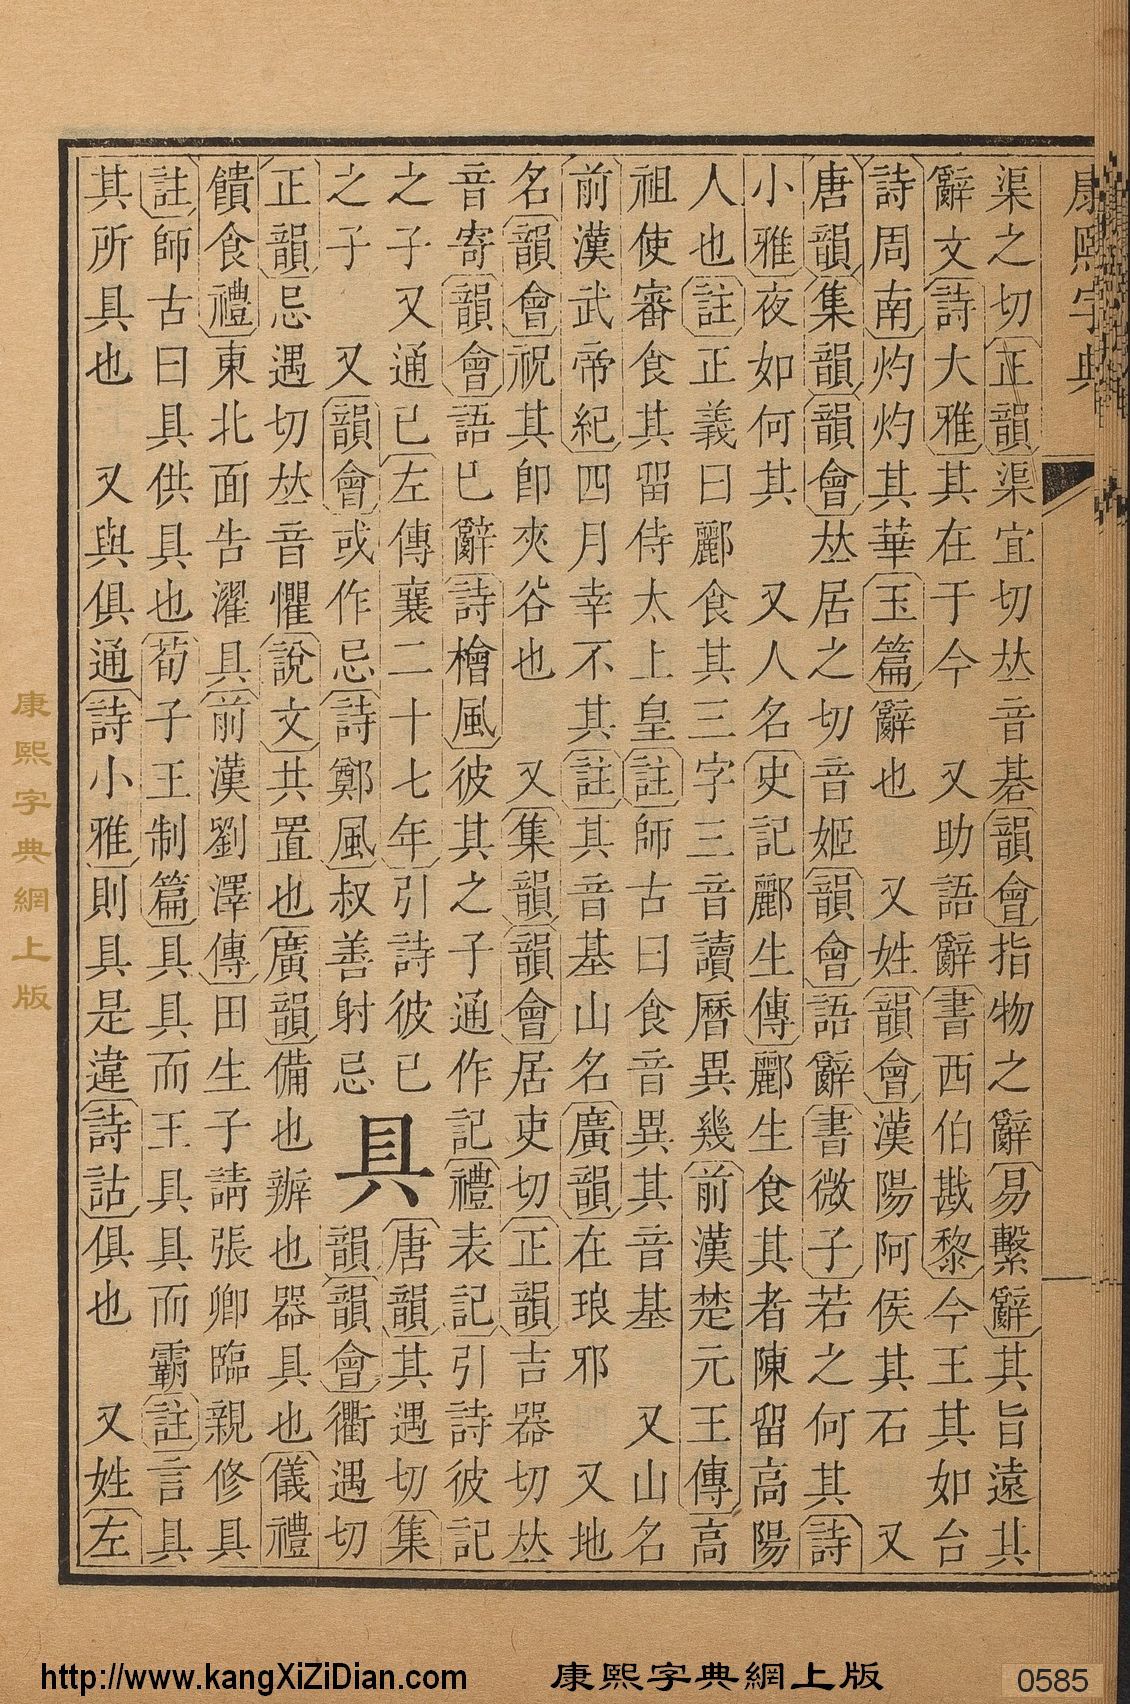 康熙字典
渠之切正韻渠宜切𠀤音碁韻會指物之辭易繫辭其旨遠其
辭文詩大雅其在于今 又助語辭書西伯戡黎今王其如台
詩周南灼灼其華玉篇辭也 又姓韻會漢陽阿侯其石 又
唐韻集韻韻會𠀤居之切音姬韻會語辭書微子若之何其詩
小雅夜如何其 又人名史記酈生傳酈生食其者陳留高陽
人也註正義曰酈食其三字三音讀曆異幾前漢楚元王傳高
祖使審食其留侍太上皇註師古曰食音異其音基 又山名
前漢武帝紀四月幸不其註其音基山名廣韻在琅邪 又地
名韻會祝其卽夾谷也 又集韻韻會居吏切正韻吉器切𠀤
音寄韻會語已辭詩檜風彼其之子通作記禮表記引詩彼記
之子又通已左傳襄二十七年引詩彼已
之子 又韻會或作忌詩鄭風叔善射忌
具
唐韻其遇切集
韻韻會衢遇切
正韻忌遇切𠀤音懼說文共置也廣韻備也辦也器具也儀禮
饋食禮東北面告濯具前漢劉澤傳田生子請張卿臨親修具
註師古曰具供具也荀子王制篇具具而王具具而霸註言具
其所具也 又與俱通詩小雅則具是違詩詁俱也 又姓左
康熙字典網上版
http://www.kangXiZiDian.com 康熙字典網上版 0585